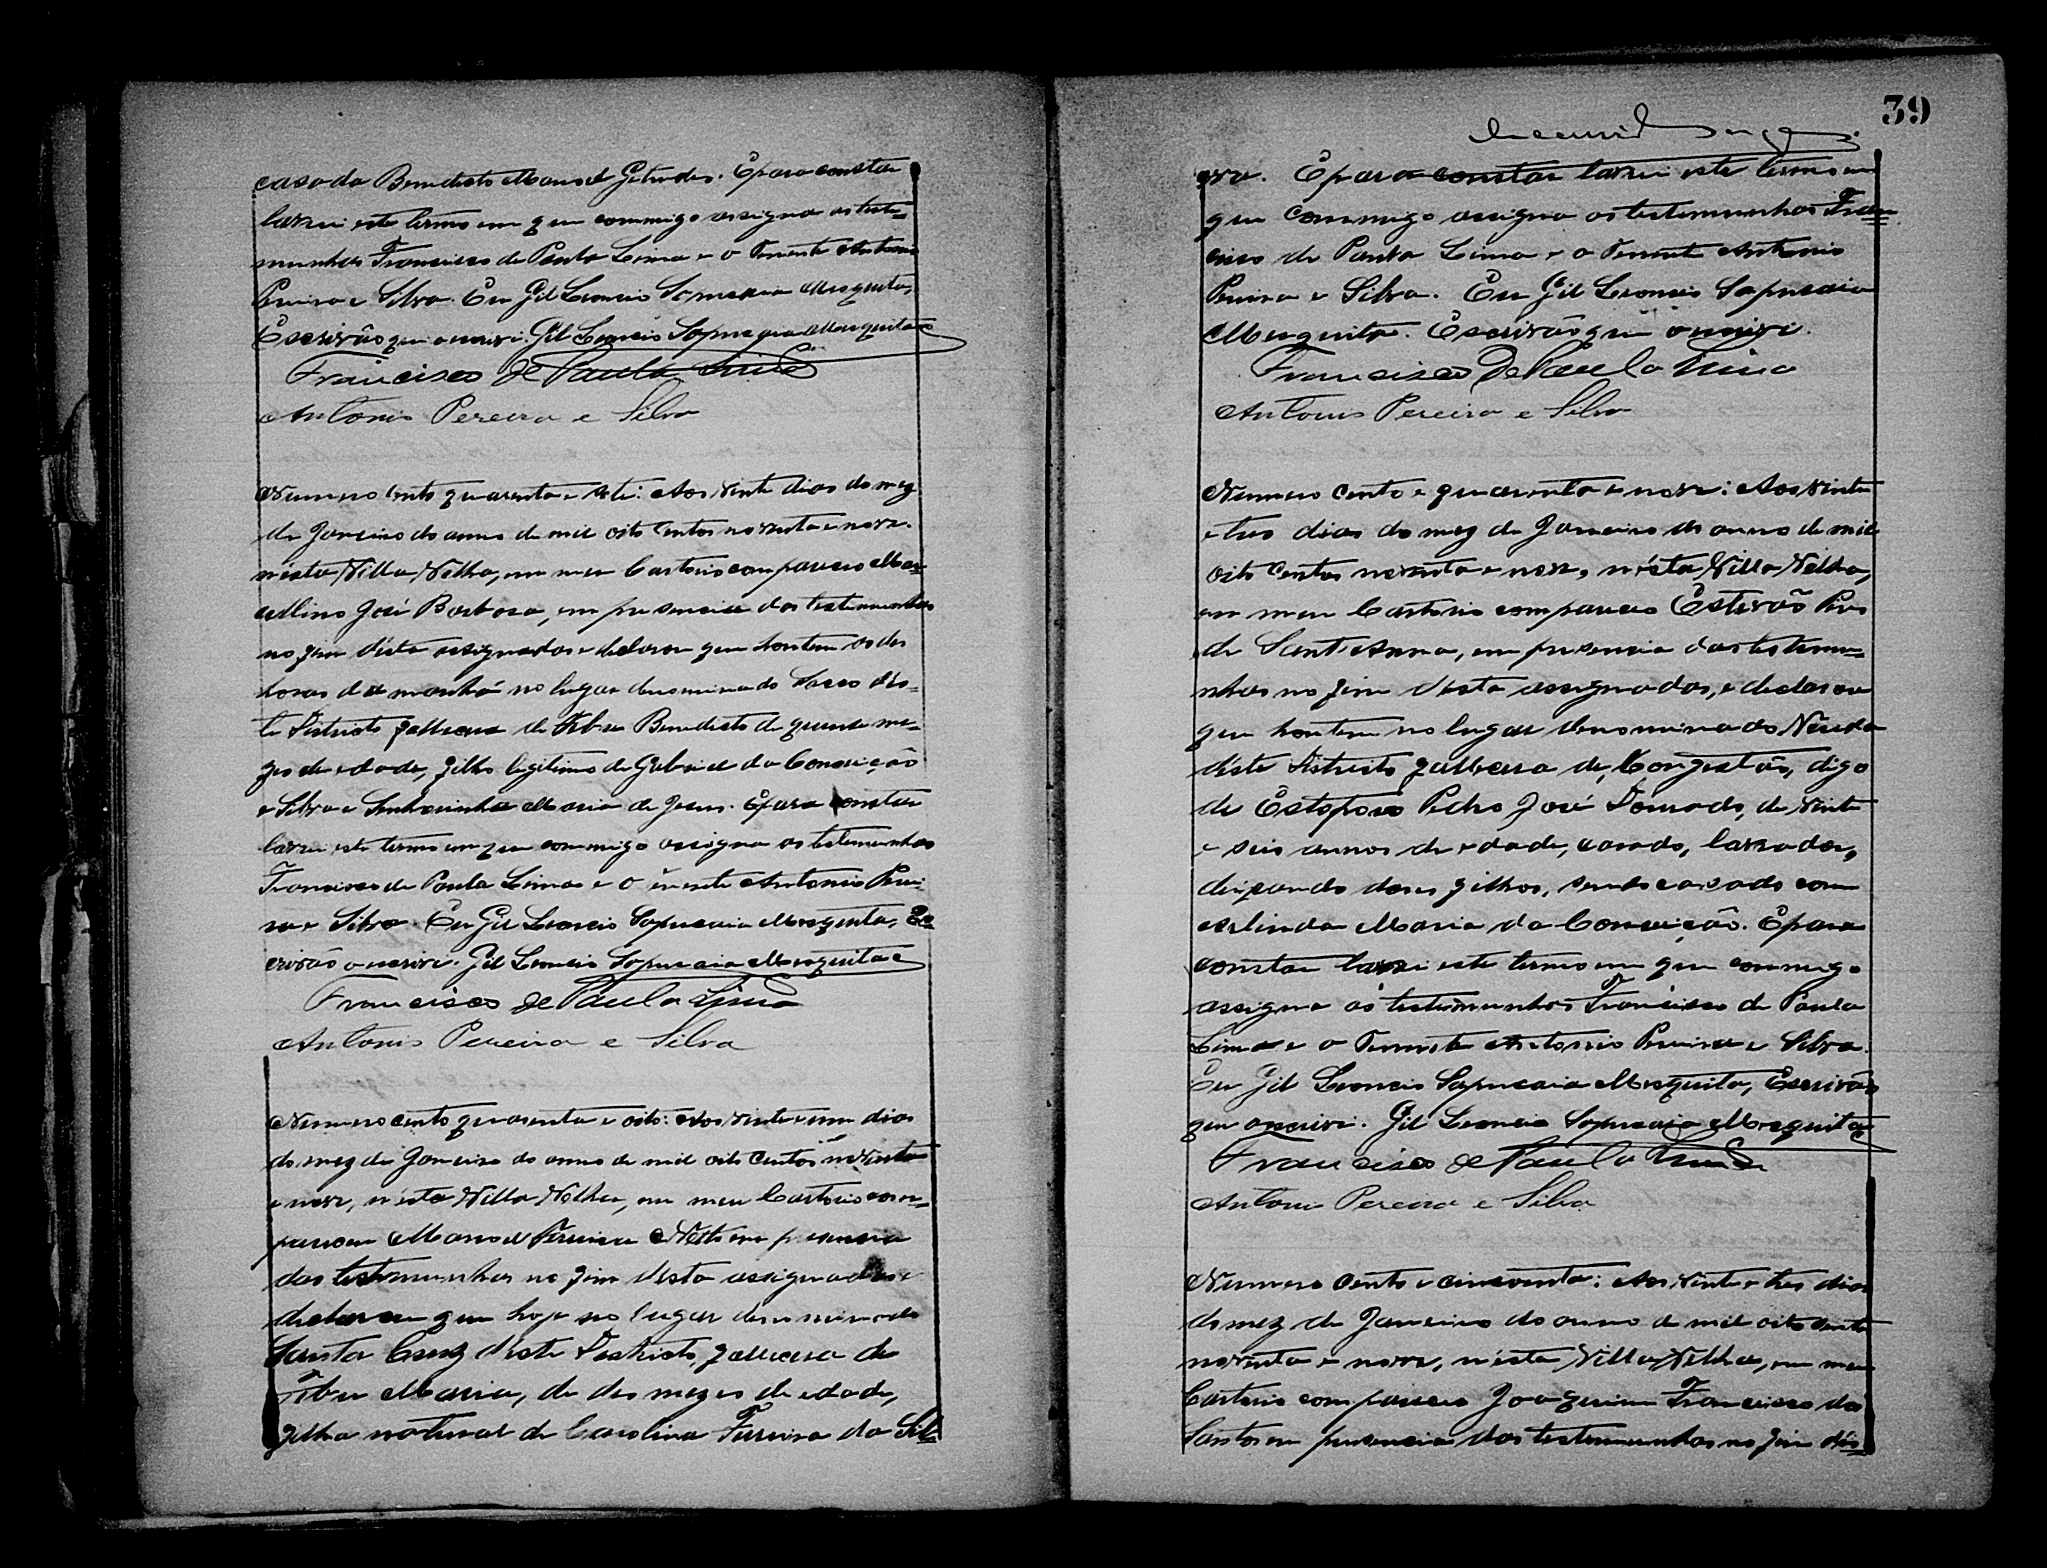 casado Benedicto Manoel Getrudes. E para constar
lavrei este termo em que commigo assigna as teste-
munhas Francisco de Paula Lima e o Tenente Antonio
Pereira e Silva. Eu Gil Leoncio Sapucaia Mesquita,
Escrivão que o escrivi. Gil Leoncio Sapucaia Mesquita
Francisco de Paula Lima
Antonio Pereira e Silva
Numero cento quarenta e sete: Aos vinte dias do mez
de Janeiro do anno de mil oito centos noventa e nove.
nésta Villa Velha, em meu Cartorio compareceo Mar-
cellino José Barbosa, em presencia das testemunhas
no fim désta assignadas e declarou que hontem as des
horas da manhã no lugar denominado Sacco dés-
te Districto falleceu de Febre Benedicto de quinze me-
zes de edade, filho legitimo de Gabriel da Conceição
e Silva e Senhorinha Maria de Jesus. E para constar
lavrei este termo em que commigo assigna as testemunhas
Francisco de Paula Lima e o Tenente Antonio Perei-
ra e Silva. Eu Gil Leoncio Sapucaia Mesquita, Es-
crivão o escrivi. Gil Leoncio Sapucaia Mesquita
Francisco de Paula Lima
Antonio Pereira e Silva
Numero cento quarenta e oito: Aos vinte e um dias
do mez de Janeiro do anno de mil oito centos noventa
e nove, nésta Villa Velha, em meu Cartorio com-
pareceu Manoel Pereira Netto em presencia
das testemunhas no fim désta assignadas e
declarou que hoje no lugar denominado
Santa Cruz déste Districto, falleceu de
Febre Maria, de des mezes de edade,
filha natural de Carolina Ferreira da Sil-
39
E para constar lavrei este termo em
que commigo assigna as testemunhas Fran-
cisco de Paula Lima e o Tenente Antonio
Pereira e Silva. Eu Gil Leoncio Sapucaia
Mesquita. Escrivão que o escrivi.
Francisco de Paula Lima
Antonio Pereira e Silva
Numero cento e quarenta e nove: Aos vinte
e tres dias do mez de Janeiro do anno de mil
oito centos noventa e nove, nésta Villa Velha,
em meu Cartorio compareceo Estevão Pires
de Sant'Anna, em presencia das testemu-
nhas no fim désta assignadas, e declarou
que hontem no lugar denominado
déste Districto falleceu de Congestão, digo
de Estopor Pedro José Dourado, de vinte
e seis annos de edade, casado, lavrador,
deixando filhos, sendo casado com
Arlinda Maria da Conceição. E para
constar lavrei este termo em que commigo
assigna as testemunhas Francisco de Paula
Lima e o Tenente Antonio Pereira e Silva.
Eu Gil Leoncio Sapucaia Mesquita, Escrivão
que o escrivi. Gil Leoncio Sapucaia Mesquita
Francisco de Paula Lima
Antonio Pereira e Silva
Numero cento e cincoenta: Aos vinte e tres dias
do mez de Janeiro do anno de mil oito centos
noventa e nove, nésta Villa Velha, em meu
Cartorio compareceo Joaquim Francisco dos
Santos em presencia das testemunhas no fim dés-